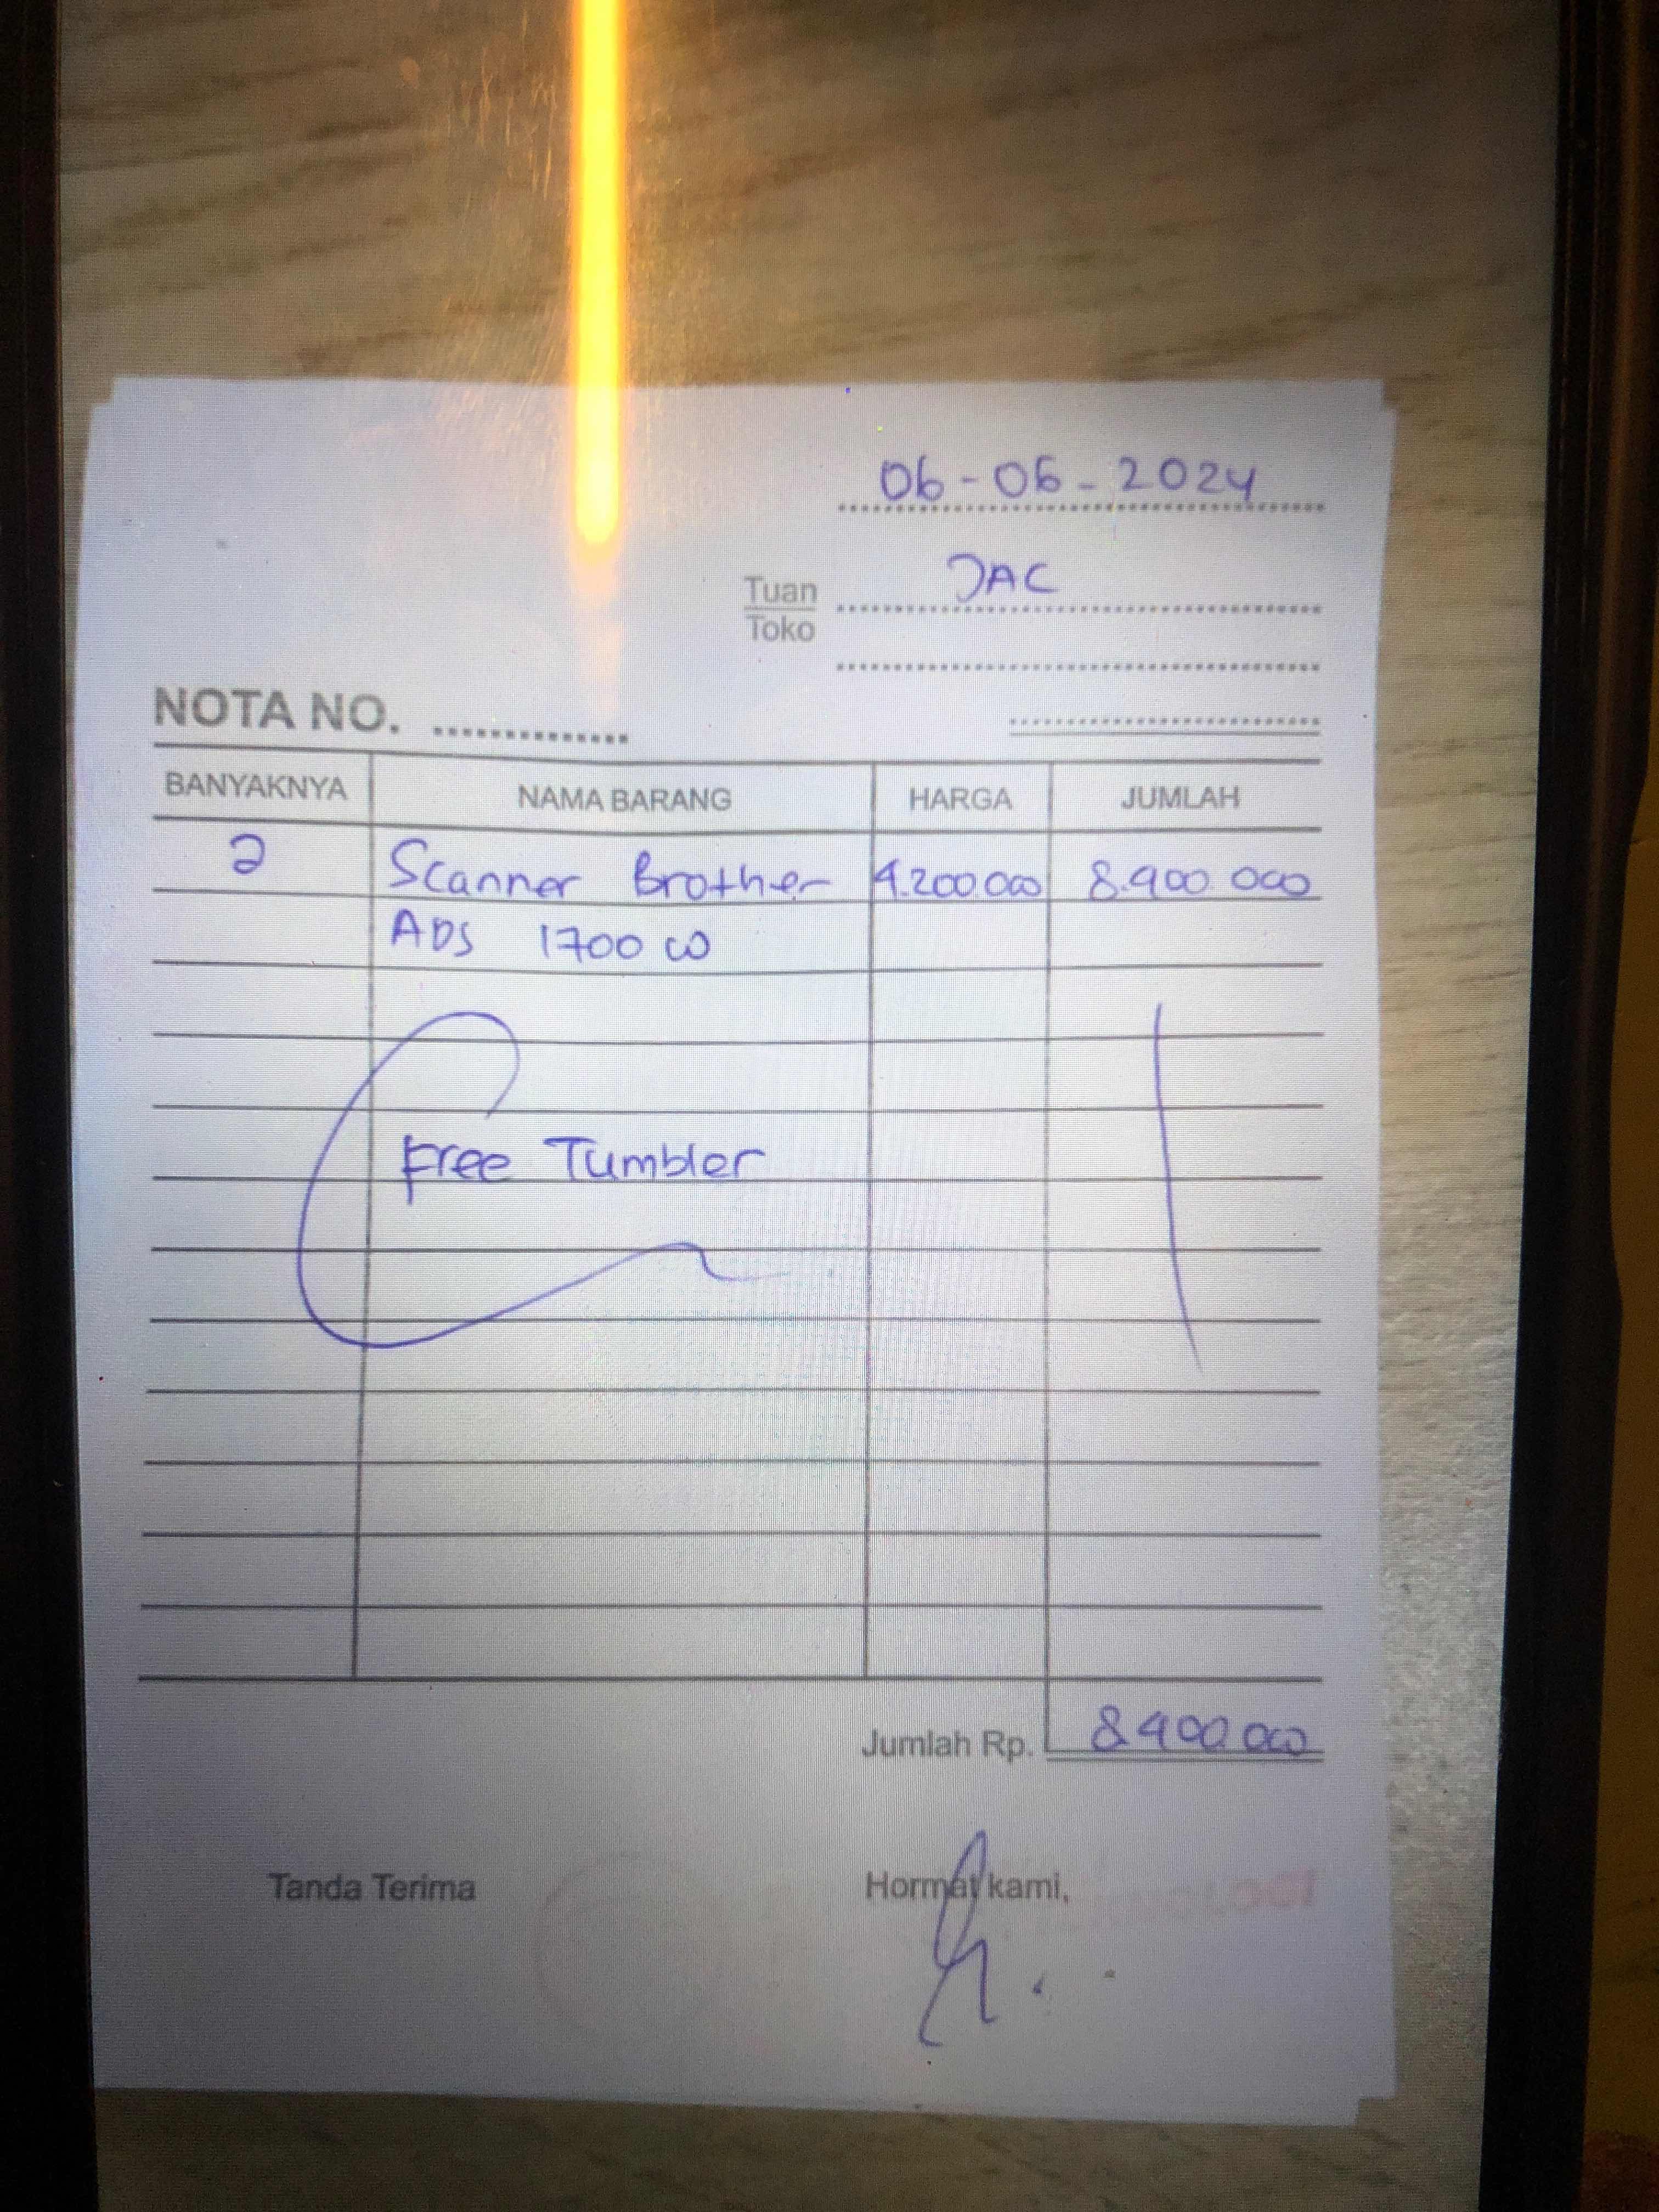 06-06-2024
Tuan JAC
Toko
NOTA NO.
BANYAKNYA NAMA BARANG HARGA JUMLAH
2 Scanner Brother 4.200.000 8.400.000
ADS 1700 W
Free Tumbler
Jumlah Rp. 8.400.000
Tanda Terima Hormat kami,